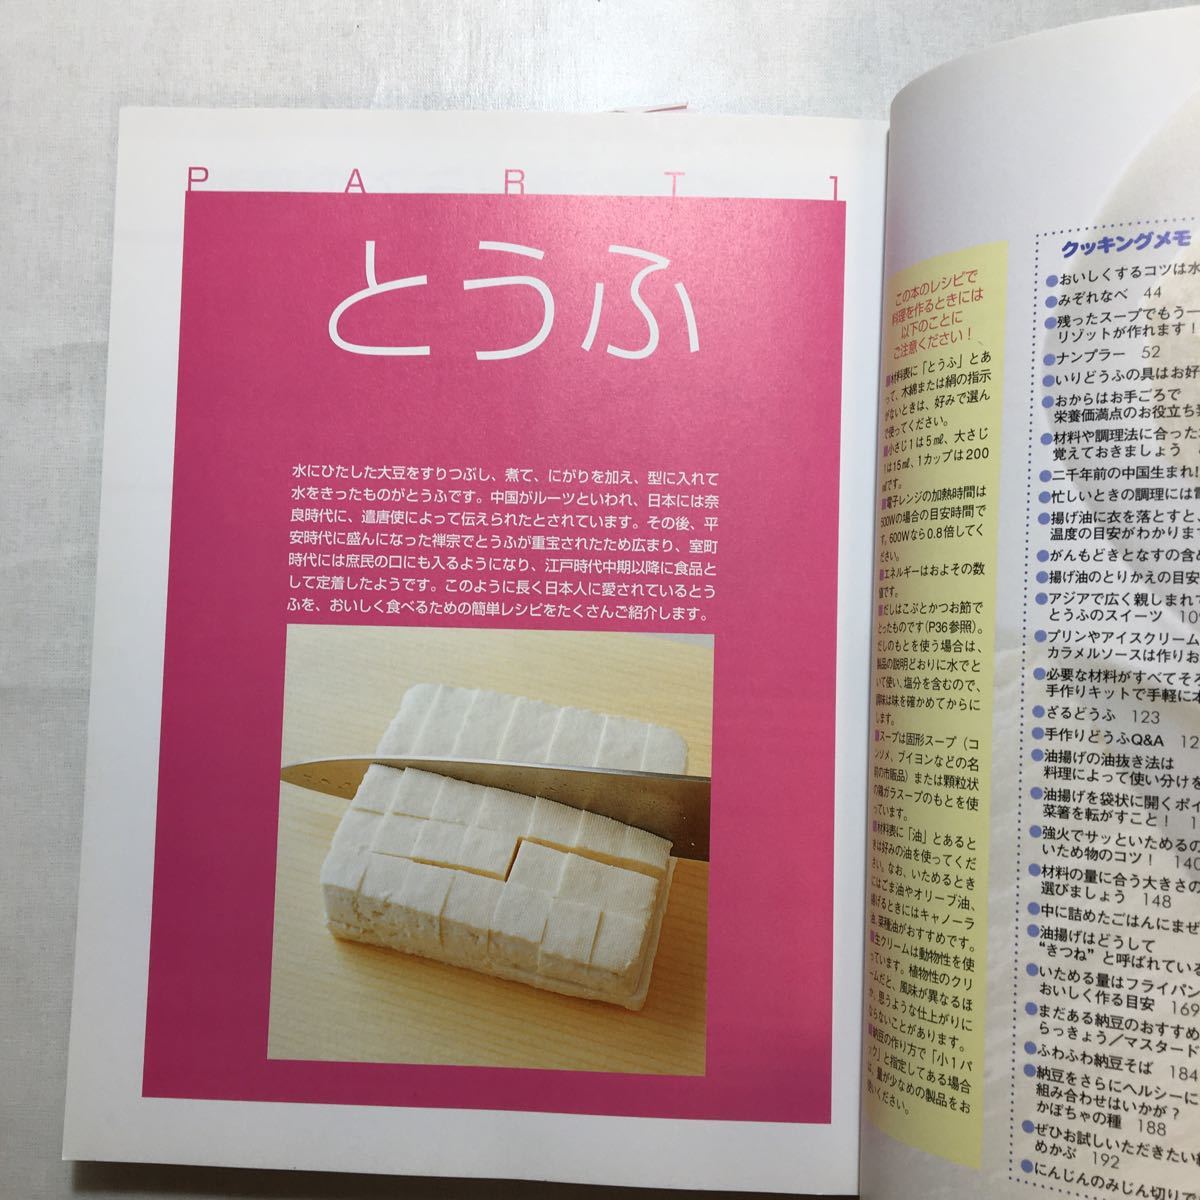 PART 1
とうふ
水にひたした大豆をすりつぶし、煮て、にがりを加え、型に入れて
水をきったものがとうふです。中国がルーツといわれ、日本には奈
良時代に、遣唐使によって伝えられたとされています。その後、平
安時代に盛んになった禅宗でとうふが重宝されたため広まり、室町
時代には庶民の口にも入るようになり、江戸時代中期以降に食品と
して定着したようです。このように長く日本人に愛されているとう
ふを、おいしく食べるための簡単レシピをたくさんご紹介します。
この本のレシピで
料理を作るときには
以下のことに
ご注意ください！
■材料表に「とうふ」とあ
って、木綿または絹の指示
がないときは、好みで選ん
で使ってください。
■小さじ1は5㎖、大さじ
1は15㎖、1カップは200
㎖です。
■電子レンジの加熱時間は
500Wの場合の目安時間で
す。600Wなら0.8倍してく
ださい。
■エネルギーはおよその数
値です。
■だしはこぶとかつお節で
とったものです(P36参照)。
だしのもとを使う場合は、
製品の説明どおりに水でと
いて使い、塩分を含むので、
調味は味を確かめてからに
します。
■スープは固形スープ（コ
ンソメ、ブイヨンなどの名
前の市販品）または顆粒状
の鶏ガラスープのもとを使
っています。
■材料表に「油」とあると
きは好みの油を使ってくだ
さい。なお、いためるとき
にはごま油やオリーブ油、
揚げるときにはキャノーラ
油、菜種油がおすすめです。
■生クリームは動物性を使
っています。植物性のクリ
ームだと、風味が異なるほ
か、思うような仕上がりに
ならないことがあります。
■納豆の作り方で「小1パ
ック」と指定してある場合
は、量が少なめの製品をお
使いください。
クッキングメモ
●おいしくするコツは水
●みぞれなべ 44
●残ったスープでもう一
リゾットが作れます！
●ナンプラー 52
●いりどうふの具はお好
●おからはお手ごろで
栄養価満点のお役立ち
●材料や調理法に合った
覚えておきましょう
●二千年前の中国生まれ!
●忙しいときの調理には
●揚げ油に衣を落とすと
温度の目安がわかります
●がんもどきとなすの含め
●揚げ油のとりかえの目安
●アジアで広く親しまれて
とうふのスイーツ 109
●プリンやアイスクリーム
カラメルソースは作りお
●必要な材料がすべてそろ
手作りキットで手軽に本
●ざるどうふ 123
●手作りどうふQ&A 12
●油揚げの油抜き法は
料理によって使い分けを
●油揚げを袋状に開くポイ
菜箸を転がすこと！ 1
●強火でサッといためるの
いため物のコツ！ 140
●材料の量に合う大きさの
選びましょう 148
●中に詰めたごはんにまぜ
●油揚げはどうして
“きつね”と呼ばれている
●いためる量はフライパン
おいしく作る目安 169
●まだある納豆のおすすめ
らっきょう／マスタード
●ふわふわ納豆そば 184
●納豆をさらにヘルシーに
組み合わせはいかが？
かぼちゃの種 188
●ぜひお試しいただきたい
めかぶ 192
●にんじんのみじん切り